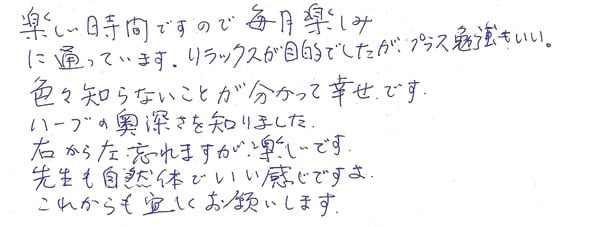 楽しい時間ですので毎月楽しみ
に通っています。リラックスが目的でしたが、プラス勉強もいい。
色々知らないことが分かって幸せ.です.
ハーブの奥深さを知りました.
右から左忘れますが、楽しいです.
先生も自然体でいい感じですよ.
これからも宜しくお願いします.